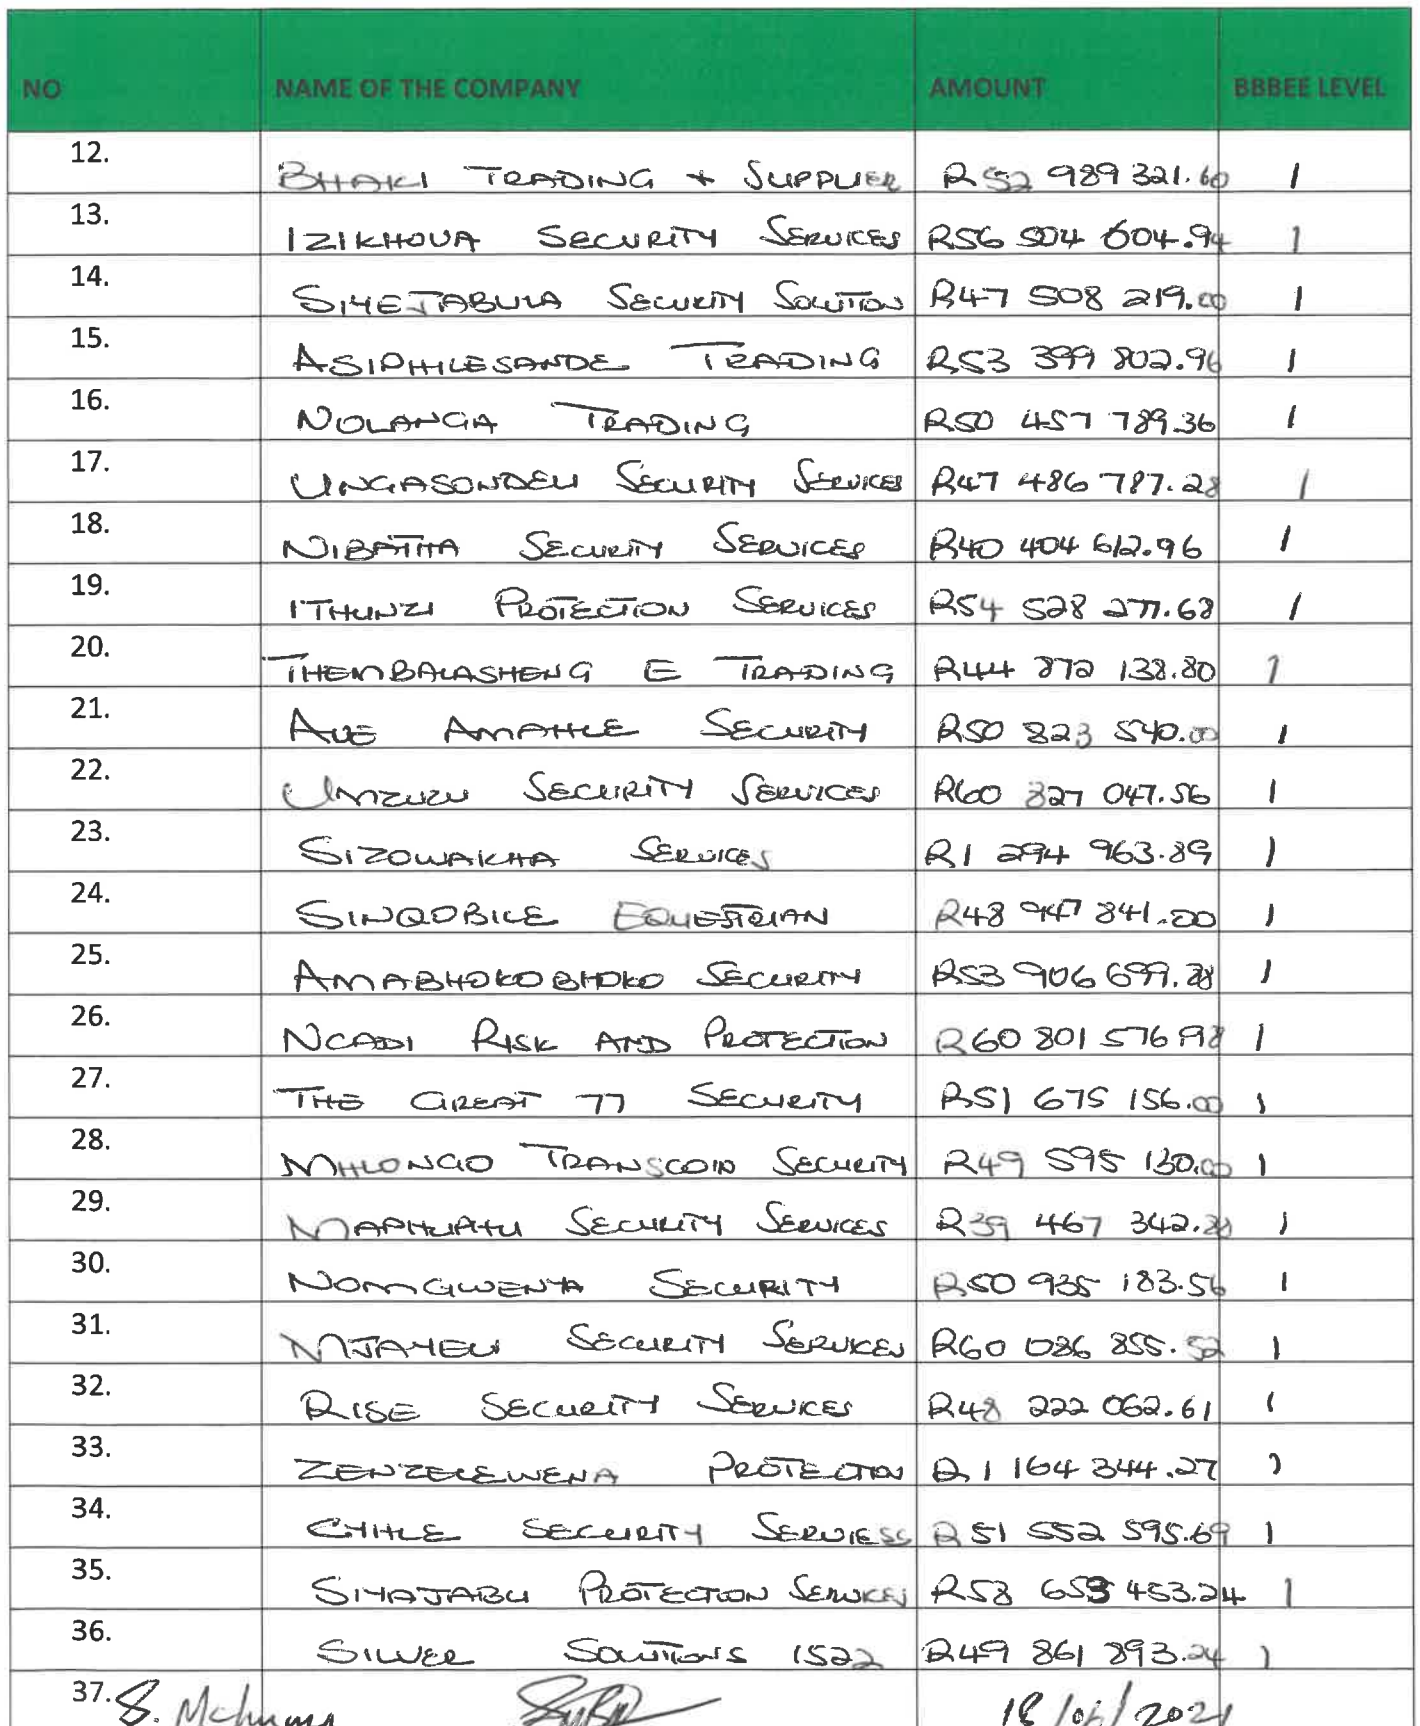 NO NAME OF THE COMPANY AMOUNT BBBEE LEVEL
12. BHAKI TRADING + SUPPLIER R52 989 321.60 1
13. IZIKHOVA SECURITY SERVICES R56 504 604.94 1
14. SIYEJABULA SECURITY SOLUTION R47 508 219.00 1
15. ASIPHILESANDE TRADING R53 399 802.96 1
16. NOLANGA TRADING R50 457 789.36 1
17. UNGASONDELI SECURITY SERVICES R47 486 787.28 1
18. NIBATHA SECURITY SERVICES R40 404 612.96 1
19. ITHUNZI PROTECTION SERVICES R54 528 277.68 1
20. THEMBALASHENG E TRADING R44 872 138.80 1
21. AVE AMAHLE SECURITY R50 823 540.00 1
22. UMZUZU SECURITY SERVICES R60 827 047.56 1
23. SIZOWAKHA SERVICES R1 294 963.89 1
24. SINQOBILE EQUESTRIAN R48 947 841.00 1
25. AMABHOKOBHOKO SECURITY R53 906 699.28 1
26. NCADI RISK AND PROTECTION R60 801 576 98 1
27. THE GREAT 77 SECURITY R51 675 156.00 1
28. MHLONGO TRANSCOIN SECURITY R49 595 130.00 1
29. MAPHUPHU SECURITY SERVICES R39 467 342.28 1
30. NOMGWENYA SECURITY R50 935 183.56 1
31. MJAYELI SECURITY SERVICES R60 086 855.52 1
32. RISE SECURITY SERVICES R48 222 062.61 1
33. ZENZELEWENA PROTECTION R1 164 344.27 1
34. CYHLE SECURITY SERVIESS R51 552 595.69 1
35. SIYAJABU PROTECTION SERVICES R58 653 453.24 1
36. SILVER SOLUTIONS 1522 R49 861 893.24 1
37. S. Mchunu 18/06/2021